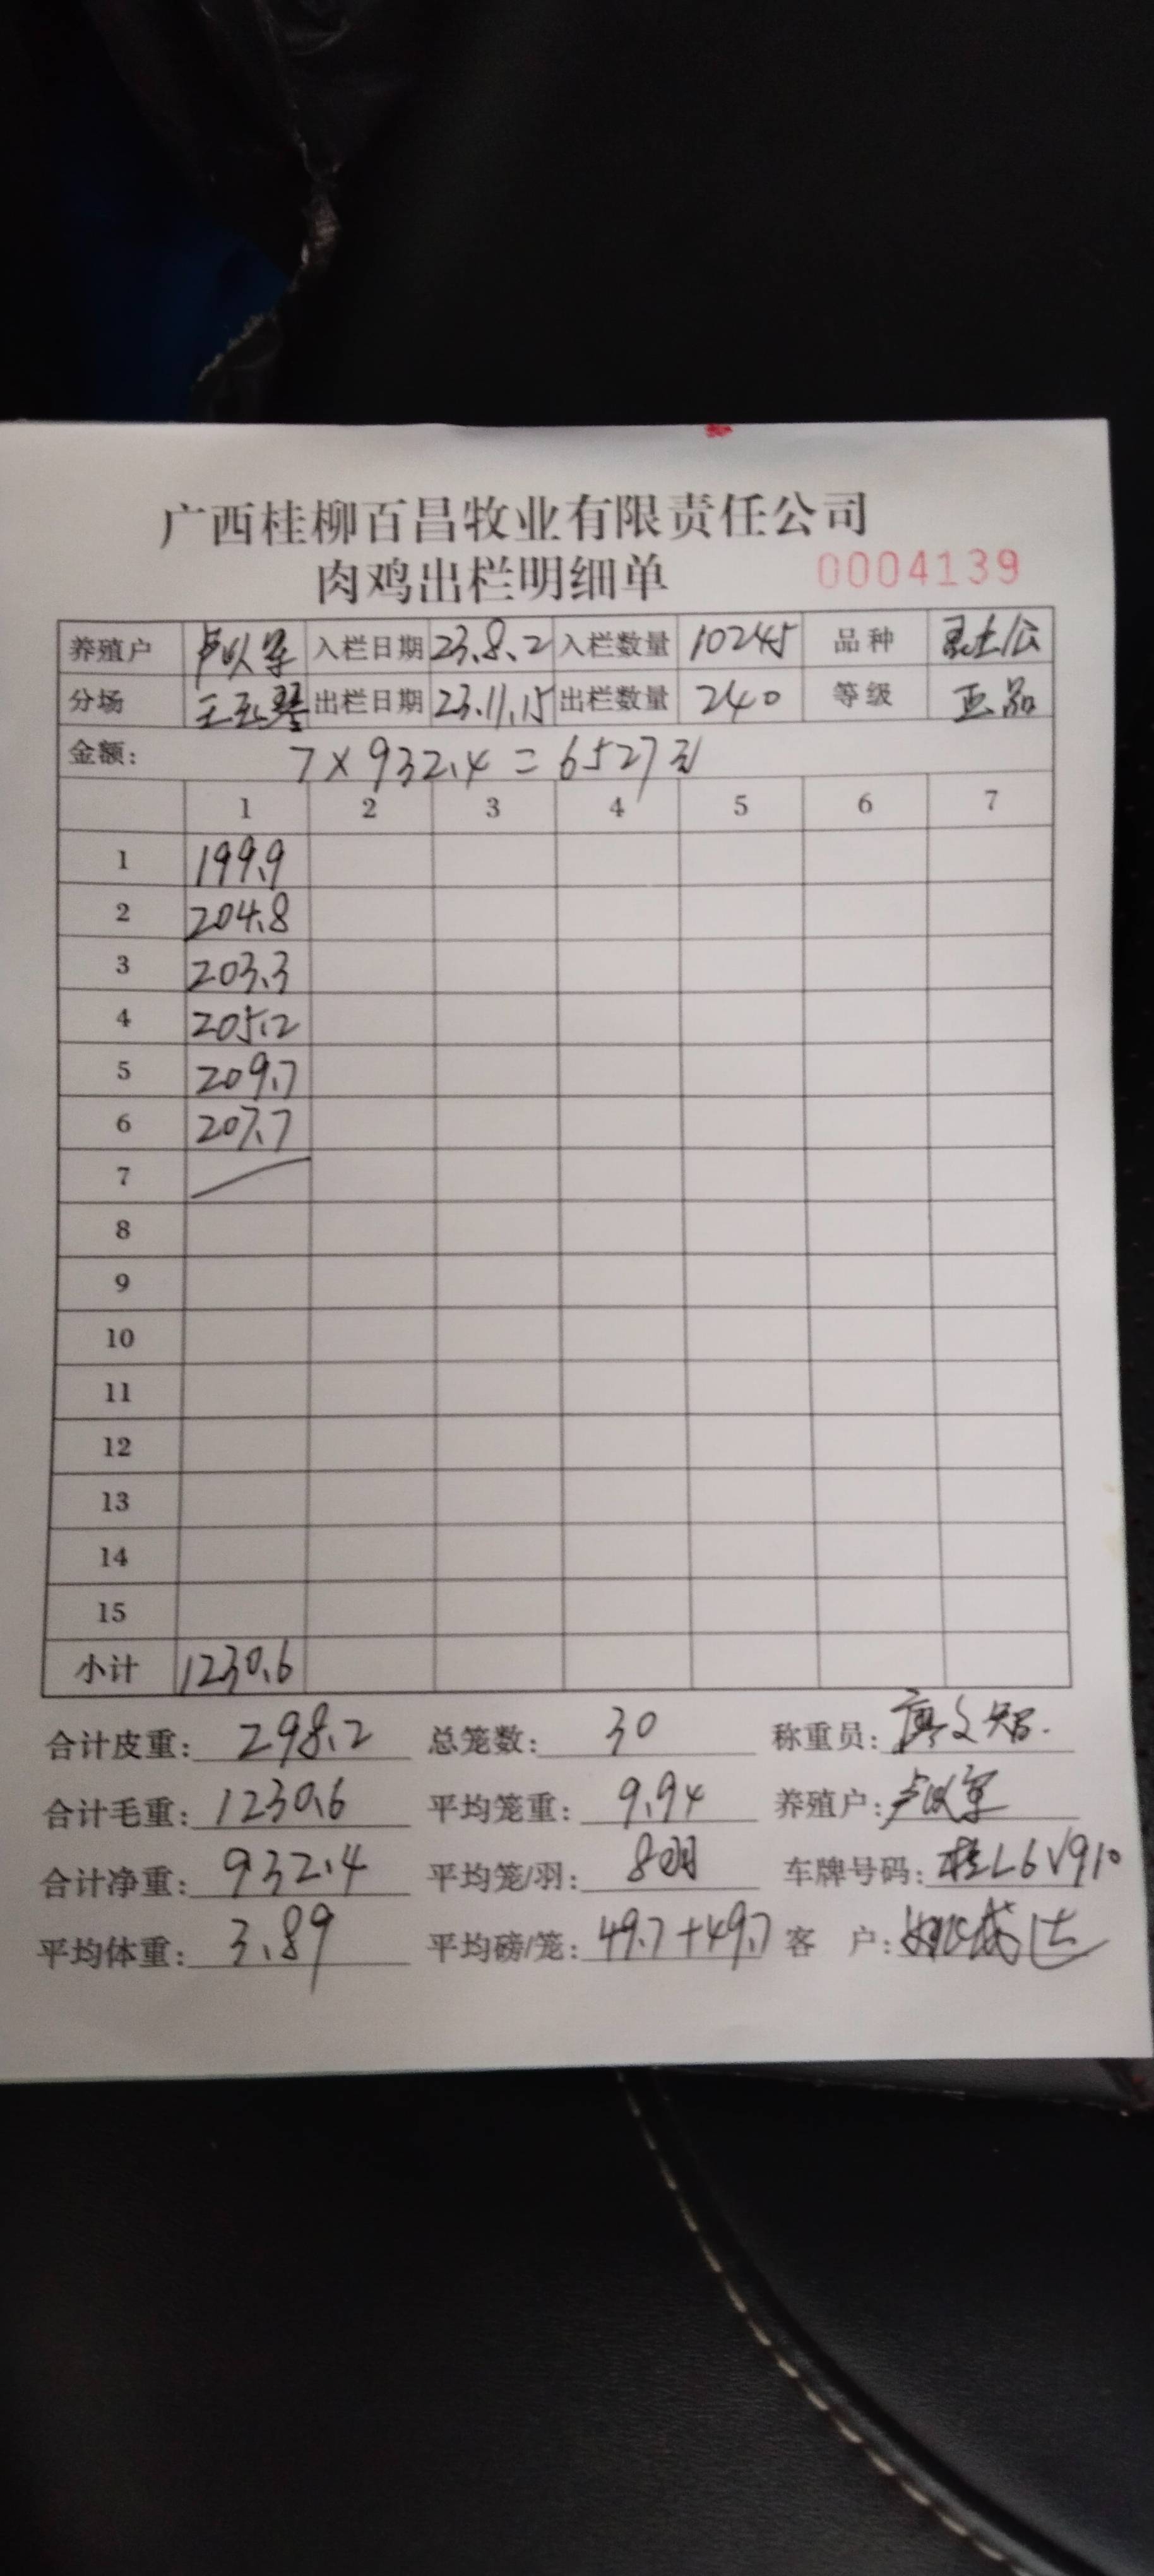 广西桂柳百昌牧业有限责任公司
肉鸡出栏明细单 0004139
养殖户 卢以军 入栏日期 23.8.2 入栏数量 10245 品种 土公
分场 王玉琴 出栏日期 23.11.15 出栏数量 240 等级 正品
金额: 7×932.4=6527元
1 2 3 4 5 6 7
1 199.9
2 204.8
3 203.3
4 205.2
5 209.7
6 207.7
7
8
9
10
11
12
13
14
15
小计 1230.6
合计皮重: 298.2 总笼数: 30 称重员: 廖文
合计毛重: 1230.6 平均笼重: 9.94 养殖户: 卢以军
合计净重: 932.4 平均笼/羽: 8羽 车牌号码: 桂L6V910
平均体重: 3.89 平均磅/笼: 49.7+49.7 客 户: